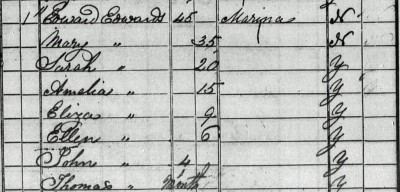 1 Edward Edwards 45 Marinas N
Mary " 35 N
Sarah " 20 Y
Amelia " 15 Y
Eliza " 9 Y
Ellen " 6 Y
John " 4 Y
Thomas " Month Y